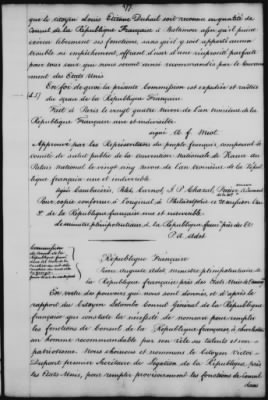 que le citoyen Louis Etienne Duhait soit reconnu en qualité de
Consul de la République Française à Baltimore afin qu'il puisse
exercer librement ses fonctions, sans qu'il y soit apporté aucun
trouble ni empêchement, offrant d'user d'une réciprocité parfaite
pour tous ceux qui nous seront ainsi recommandés par le Gouverne-
ment des Etats Unis
En foi de quoi la présente Commission est expédiée et scellée
du sceau de la République Française
Fait à Paris le vingt quatre de l'an troisième de la
République Française une et indivisible.
signé A. f. Miot
Approuvé par les Représentans du peuple français, composant le
comité de salut public de la convention nationale de France au
Palais national le vingt cinq de l'an troisième de la Répu-
blique française une et indivisible
signé Cambacérès, Pelet, Carnot, J. P. Chazal, Prieur
Pour copie conforme à l'original, à Philadelphie ce Messidor l'an
3e de la République française une et indivisible
Le ministre plénipotentiaire de la République française près les EU
P. A. Adet.
République Française
Pierre Auguste Adet, ministre plénipotentiaire de
la République française près les Etats Unis de l'Amérique
En vertu des pouvoirs qui nous sont donnés, et d'après le
rapport du Citoyen Létombe Consul Général de la République
française qui constate la nécessité de nommer pour remplir
les fonctions de Consul de la République française, à Charleston
un homme recommandable par son zèle ses talents et son
patriotisme. Nous choisissons et nommons le Citoyen Victor
Dupont premier Secrétaire de Légation de la République, près
les Etats Unis, pour remplir provisoirement les fonctions de Consul
dans